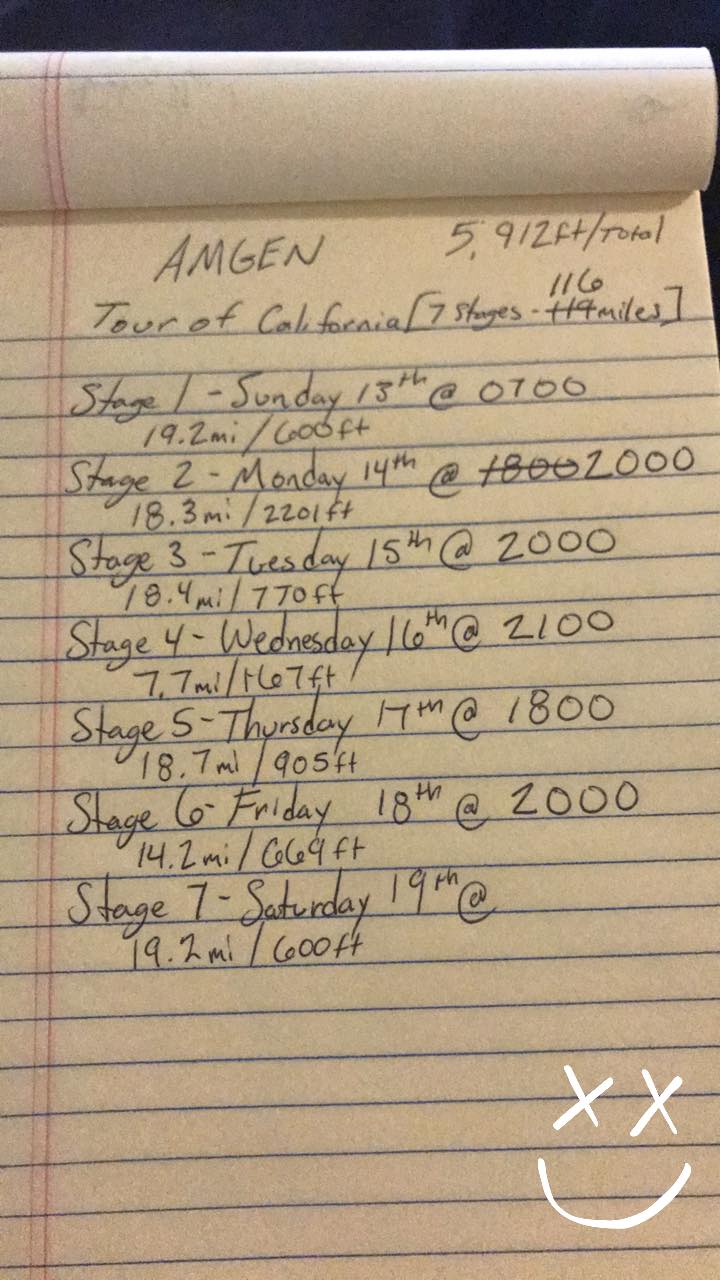 AMGEN 5,912ft/Total
116
Tour of California [7 Stages - miles]
Stage 1 - Sunday 13th @ 0700
19.2mi / 600ft
Stage 2 - Monday 14th @ 1800 2000
18.3mi / 2201ft
Stage 3 - Tuesday 15th @ 2000
18.4mi / 770ft
Stage 4 - Wednesday 16th @ 2100
7.7mi / 167ft
Stage 5 - Thursday 17th @ 1800
18.7mi / 905ft
Stage 6 - Friday 18th @ 2000
14.2mi / 669ft
Stage 7 - Saturday 19th @
19.2mi / 600ft